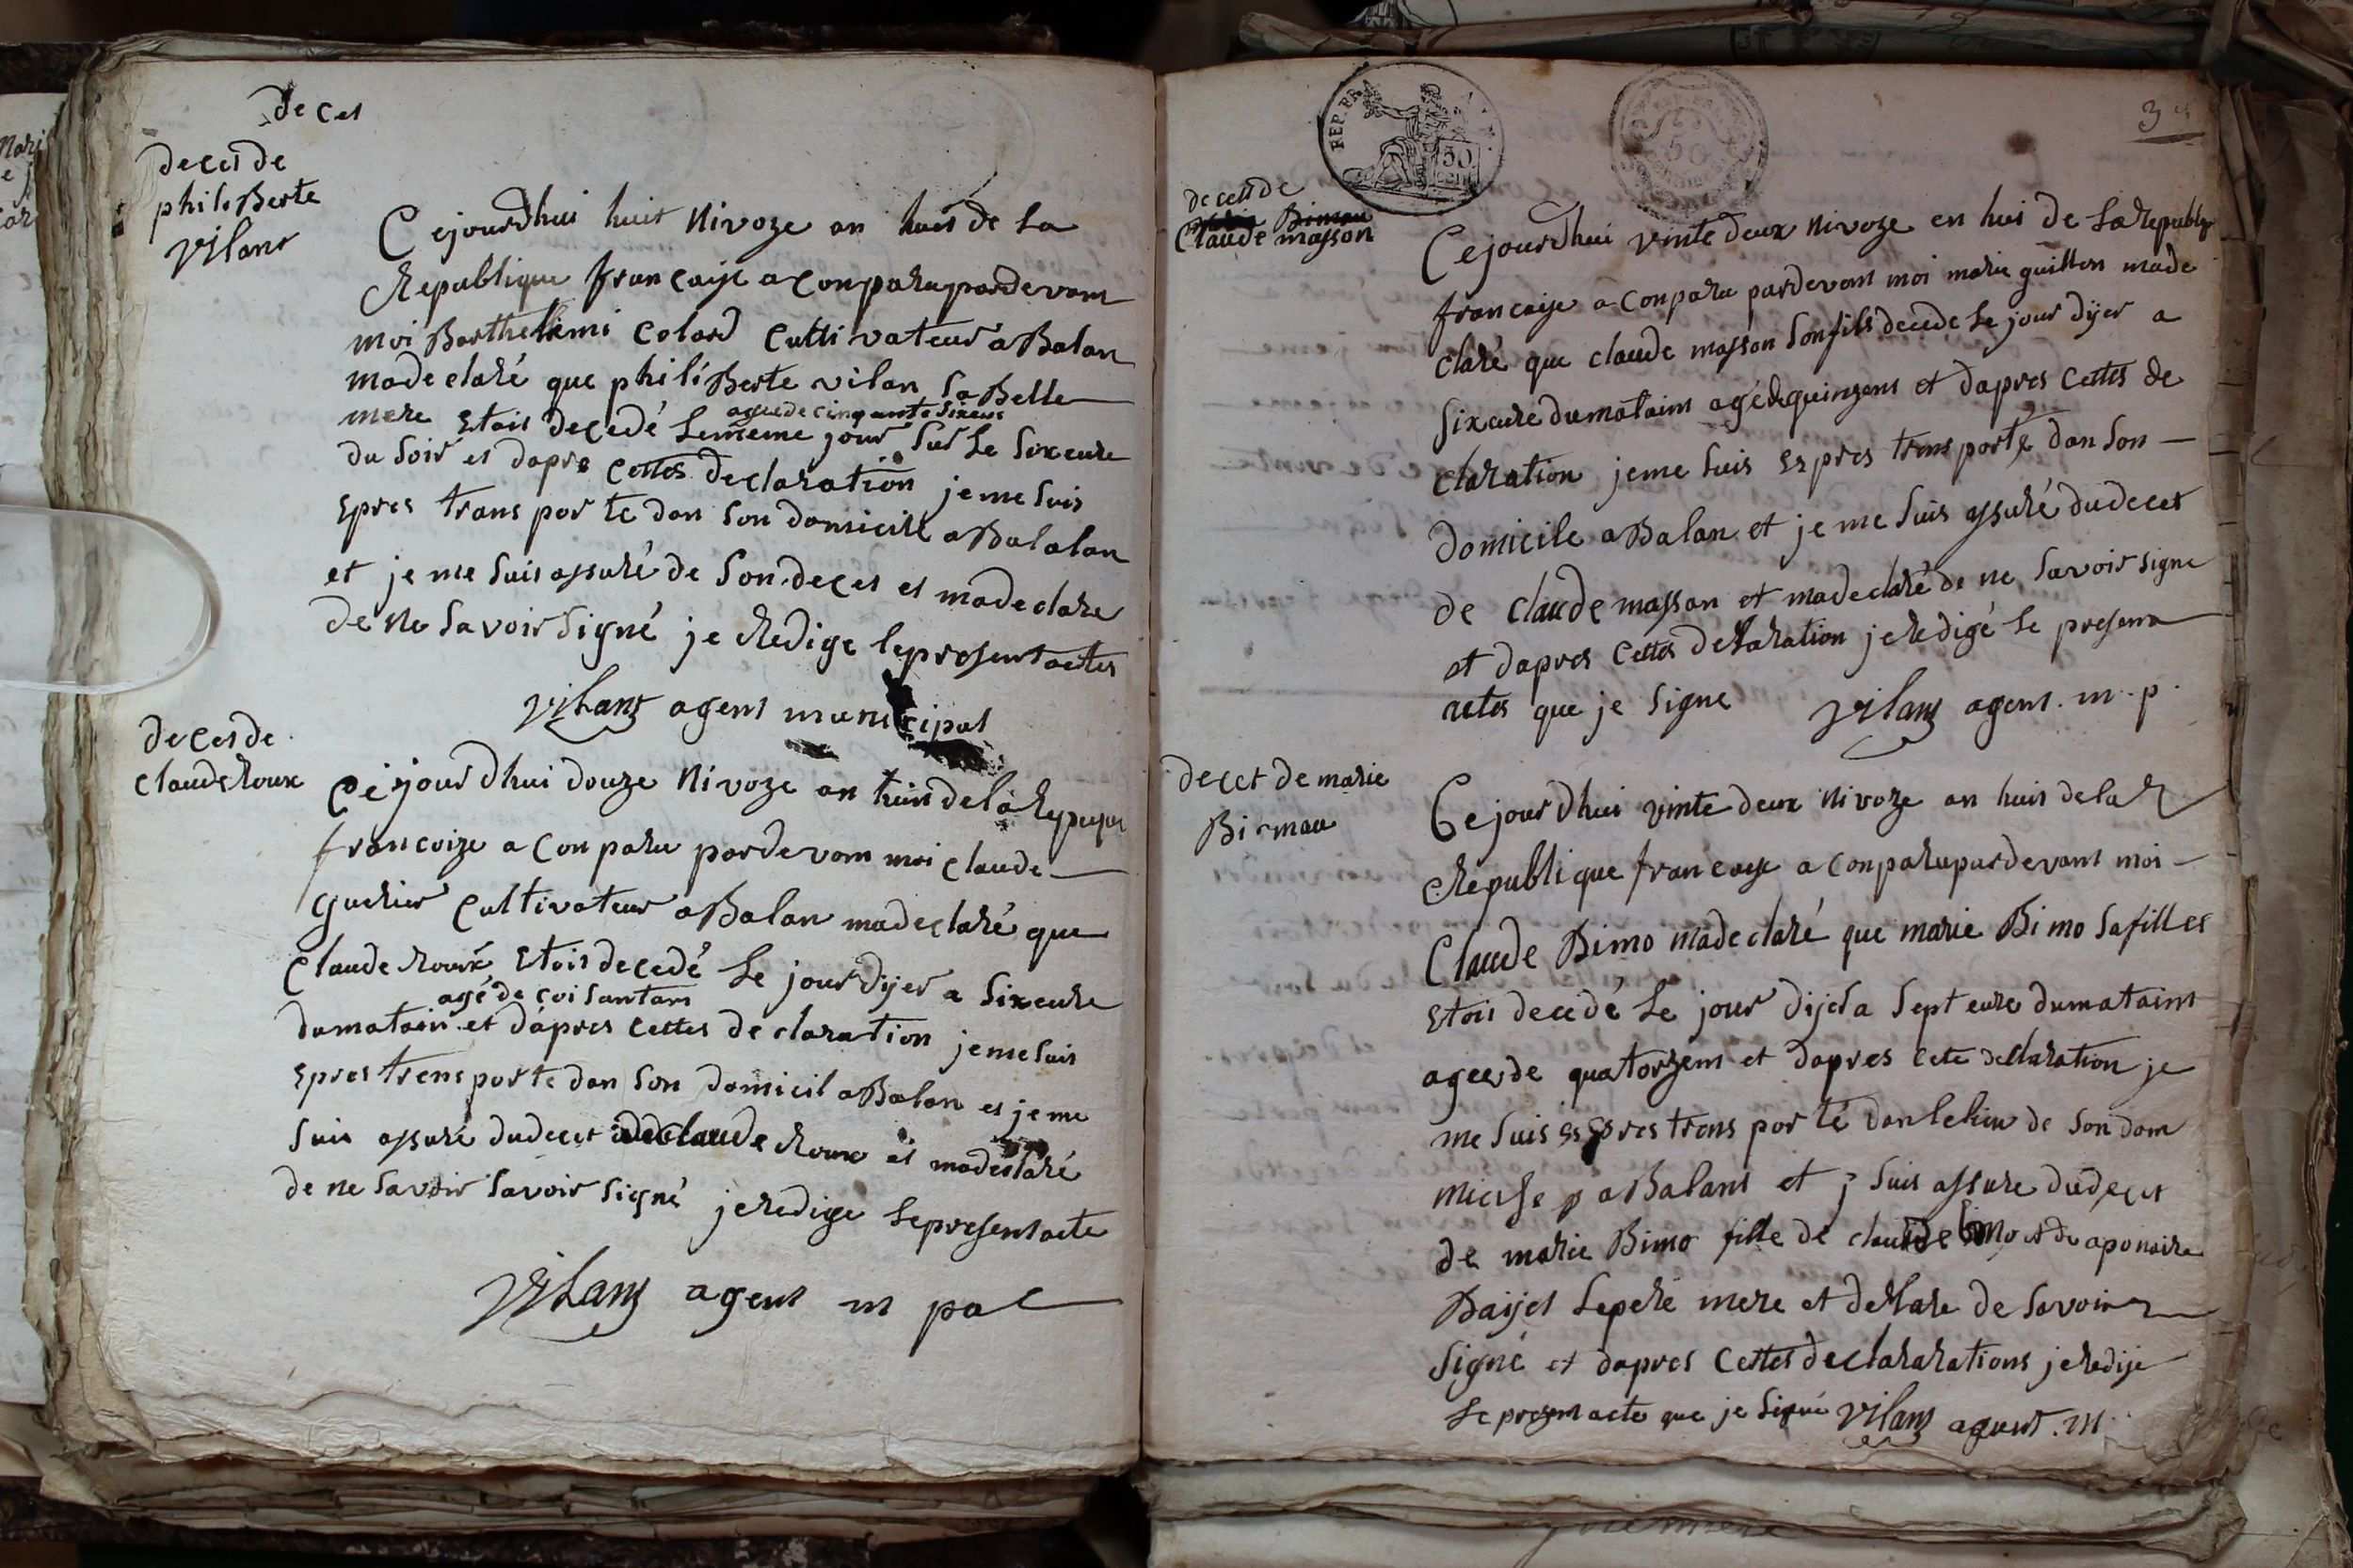 deces
deces de
philiBerte
vilans
Cejourdhui huit Nivoze an huit de La
Republique francaise a Conparu pardevant
moi Barthelemi Colard Cultivateur a Balan
ma declaré que philiBerte vilan Sa Belle
mere Etois decedé Lememe jour Sur Le Sixeure
ageede cinquante Sixens
du Soir et dapre Cettes declaration je me Suis
Epres trans porte dan Son domicile a Balalan
et je me Suis assuré de Son deces et ma declare
de Ne Savoir Signé je Redige le present actes
Vilans agent municipal
deces de
Claude Roux
Ce jourdhui douze Nivoze an huis de la
francoize a Conparu pardevant moi Claude
Guerier Cultivateur a Balan ma declaré que
Claude Roux Etois decedé Le jour dijer a Sixeure
agé de Soisantans
du matain et dapres Cettes de claration je me Suis
Epres trensporte dan Son domicil a Balan et je me
Suis assuré du deces de Claude Roux et ma declaré
de ne Savoir Savoir Signé je Redige Le present acte
Vilans agent m pal
REP. FRA
50
CENT
3e
deces de
Bimau
Claude masson
Cejourdhui vinte deux nivoze en hui de La Republiq
francaise a Conparu pardevant moi marie guillon made
claré que claude masson Son fils decede Le jour dijer a
Sixeure du matains agé de quinzens et dapres Cettes de
claration je me Suis Espres trens porté dan Son
domicile a Balan et je me Suis assuré du deces
de Claude masson et ma declaré de ne Savoir Signe
et dapres Cettes declaration je redigé Le presena
actes que je Signe Vilans agent. m. p.
deces de marie
Bimau
Ce jourdhui vinte deux Nivoze an huis de la R
Republique francaise a Conparu pardevant moi
Claude Bimo ma declaré que marie Bimo Sa filles
Etois decedé Le jour dijer a Sept eure du matains
agee de quatorzens et dapres Cete declaration je
me Suis Espres trens porté dan le lieu de Son dom
a Balans et j Suis assure du deces
de marie Bimo fille de claude Bimo et de aponaire
Baijet Le pere mere et declare de Savoir
Signé et dapres Cettes declararations je redije
Le presen acte que je Signé Vilans agent. m.